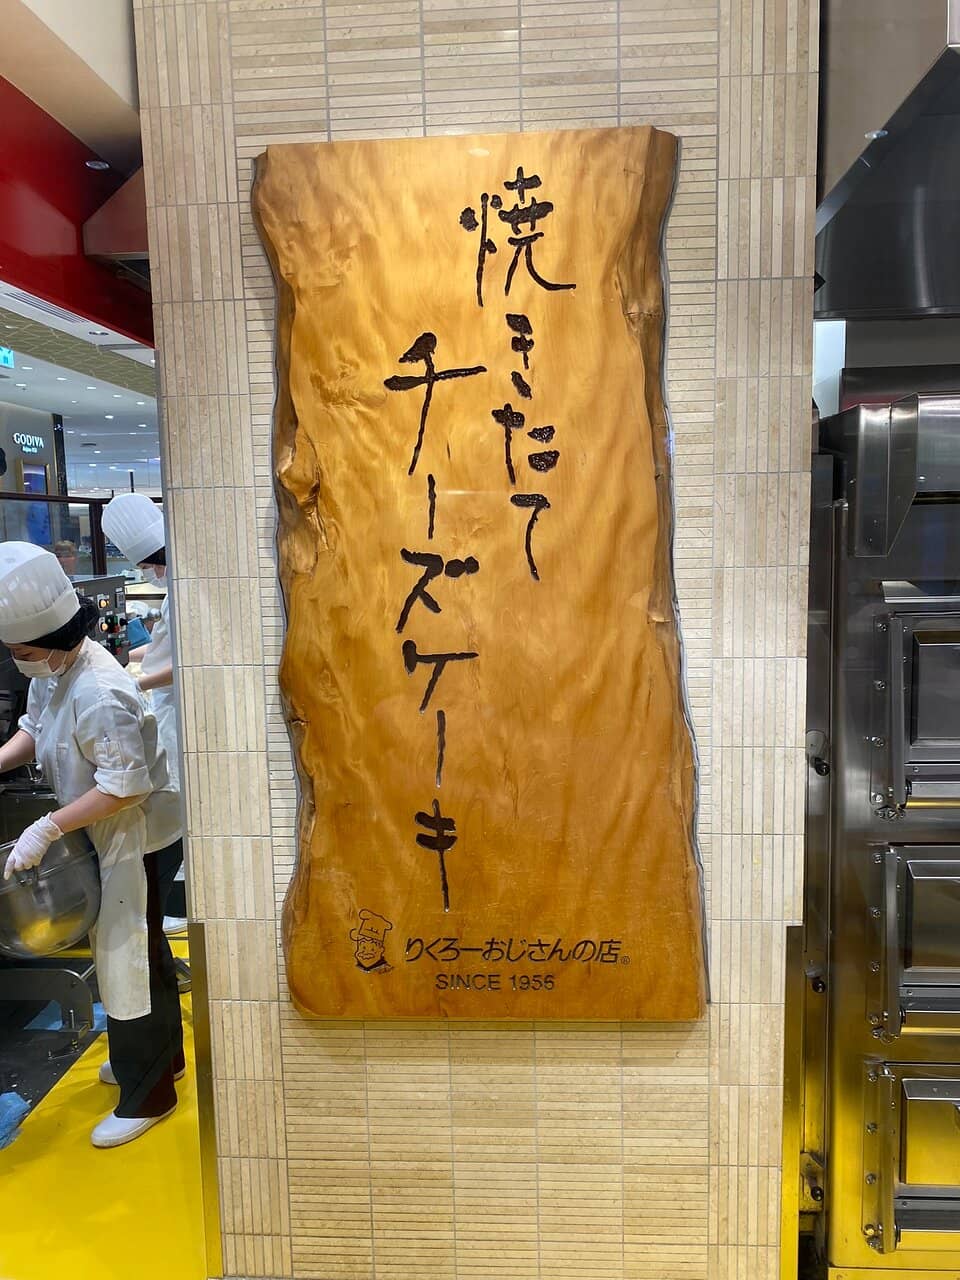 焼きたて
チーズケーキ
りくろーおじさんの店®
SINCE 1956
GODIVA